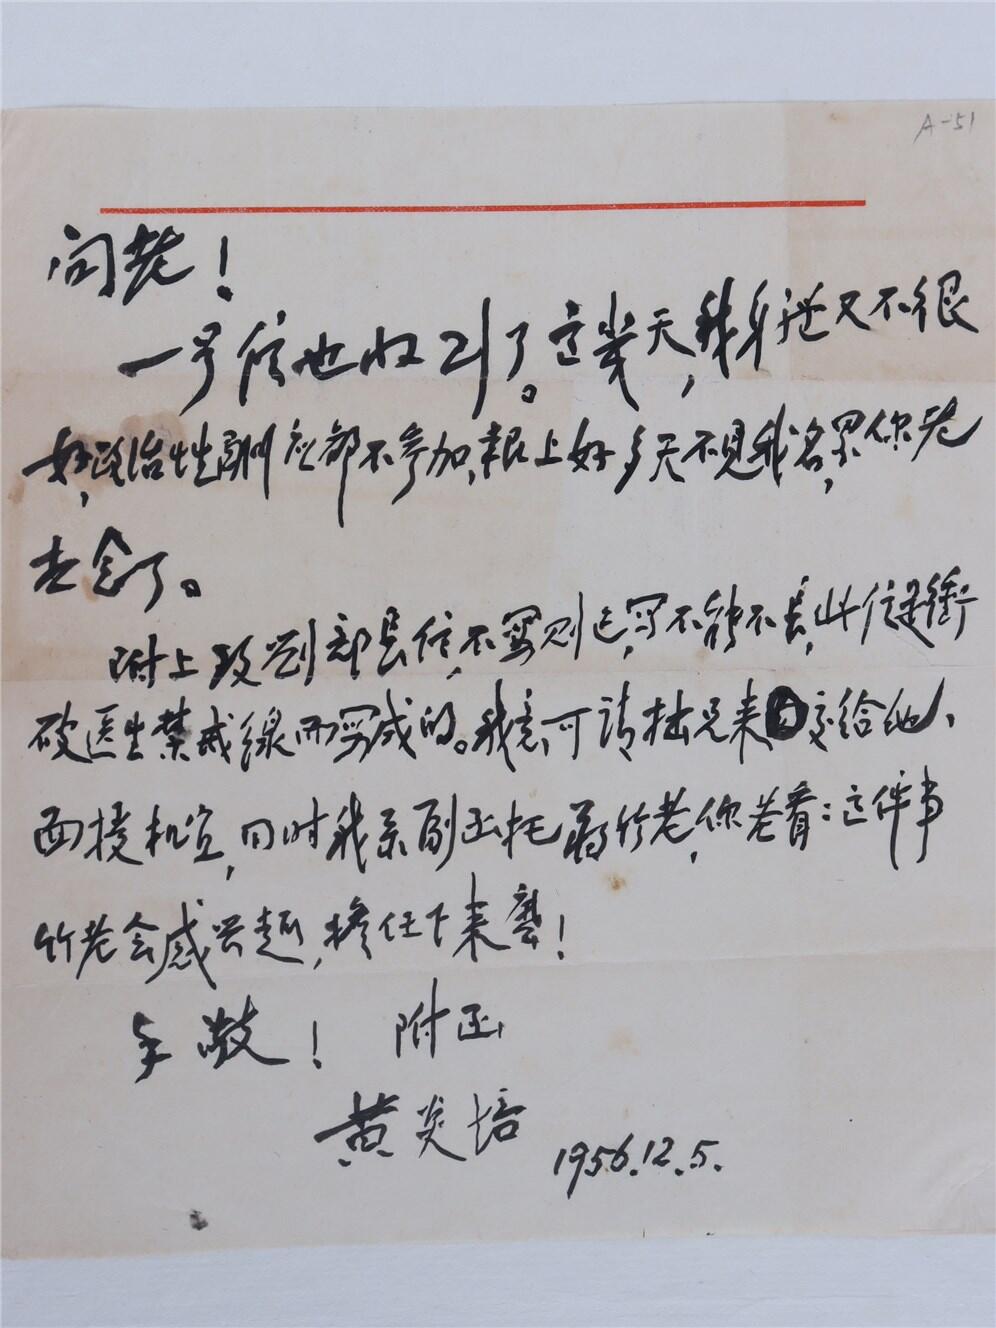 A-51
问老！
一号信也收到了。这几天，我身体又不很
好，政治性酬应都不参加，报上好多天不见我名，累你老
去念了。
附上致刘部长信，不写则已，写不能不长，此信是衝
破医生禁戒線而写成的。我意，可请拙兄来交给他、
面授机宜，同时我亲副函托蒋竹老，你老看：这件事
竹老会感兴趣，擔任下来麼！
手敬！ 附函
黄炎培
1956.12.5.